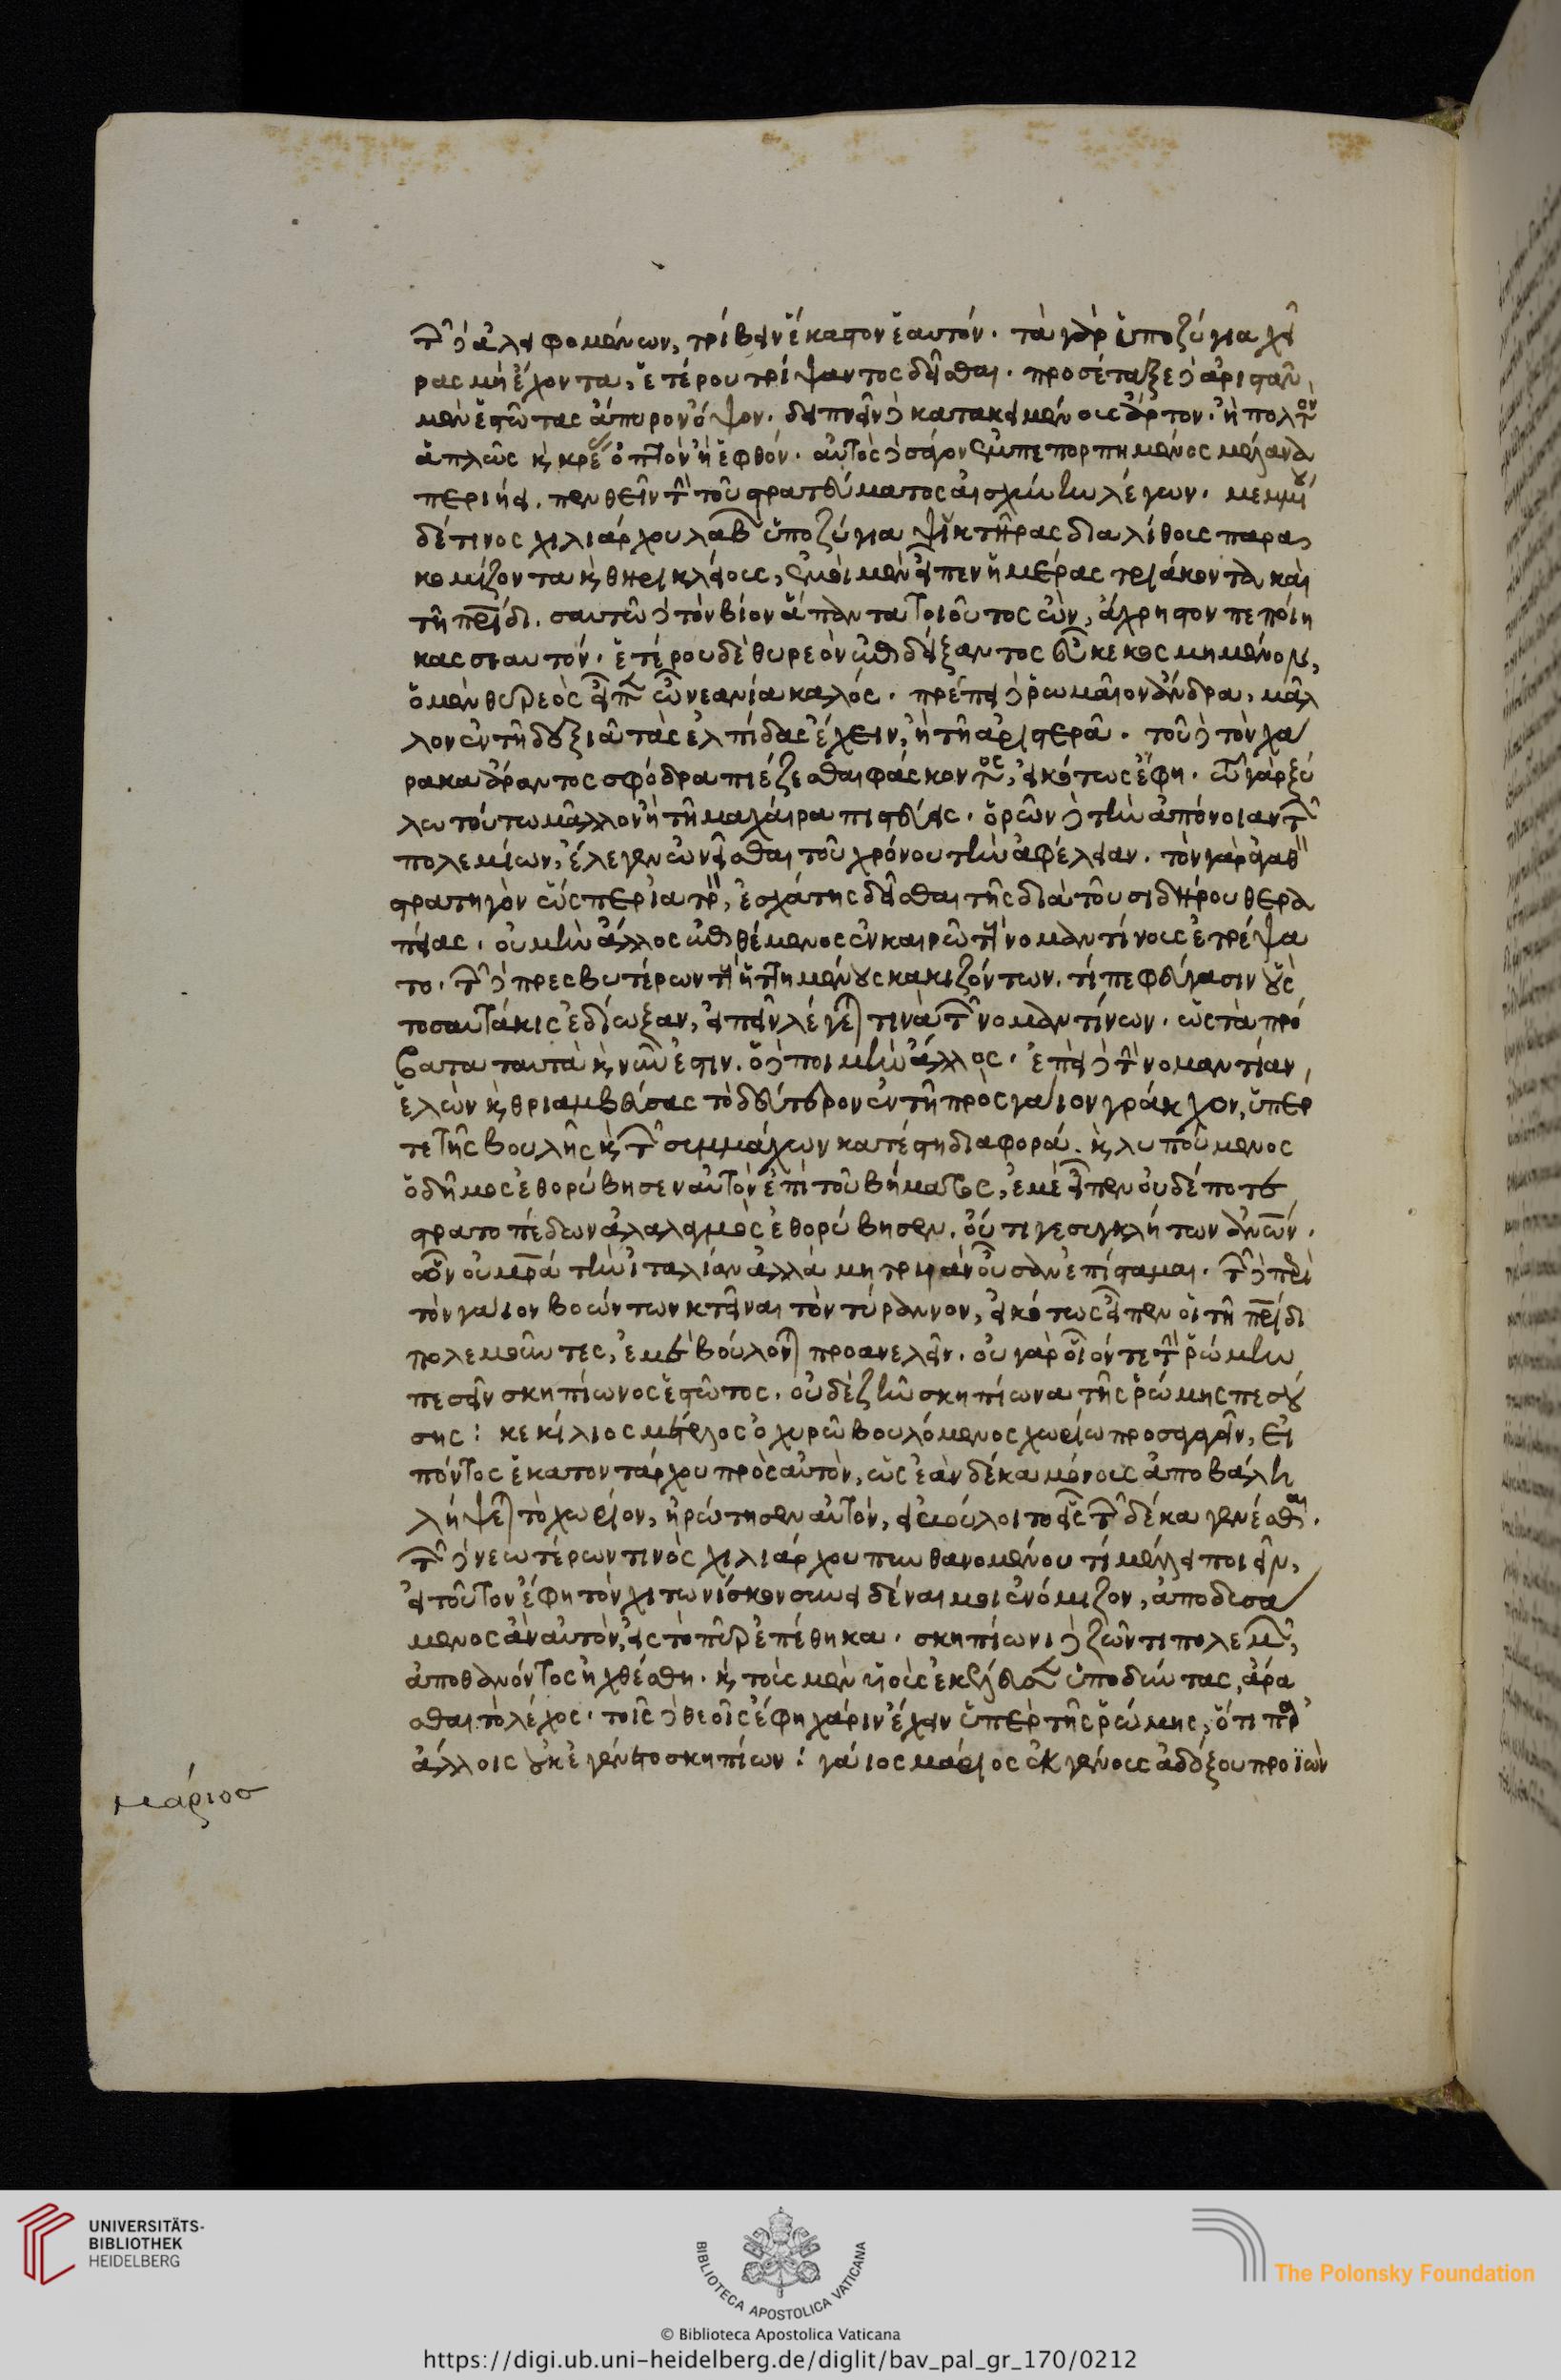 τῶν δὲ ἀλειφομένων, τρίβειν ἕκαστον ἑαυτόν. τὰ γὰρ ὑποζύγια χεῖ
ρας μὴ ἔχοντα, ἑτέρου τρίψαντος δεῖσθαι. προσέταξε δὲ ἀριστᾶν
μὲν ἑστῶτας ἄπυρον ὄψον. δειπνεῖν δὲ κατακειμένους ἄρτον. ἢ πολτὸν
ἁπλῶς καὶ κρέας ὀπτὸν ἢ ἑφθόν. αὐτὸς δὲ σάγον ἐμπεπορπημένος μέλανα
περιήει. πενθεῖν τὴν τοῦ στρατεύματος αἰσχύνην λέγων. μεμμίου
δέ τινος χιλιάρχου λαβὼν ὑποζύγια ψυκτῆρας διαλίθους παρα
κομίζοντα καὶ θηρικλείους, ἐμοὶ μὲν εἶπεν ἡμέρας τριάκοντα καὶ
τῆ πατρίδι. σαυτῶ δὲ τὸν βίον ἅπαντα τοιοῦτος ὢν, ἄχρηστον πεποίη
κας σιαυτόν. ἑτέρου δὲ θυρεὸν ἐπιδείξαντος εὖ κεκοσμημένον,
ὁ μὲν θυρεὸς εἶπεν ὦ νεανία καλός. πρέπει δὲ ῥωμαῖον ἄνδρα, μᾶλ
λον ἐν τῆ δεξιᾶ τὰς ἐλπίδας ἔχειν, ἢ τῆ ἀριστερᾶ. τοῦ δὲ τὸν χά
ρακα ἄραντος σφόδρα πιέζεσθαι φάσκοντος, εἰκότως ἔφη. τῶ γὰρ ξύ
λω τούτω μᾶλλον ἢ τῆ μαχαίρα πιστεύεις. ὁρῶν δὲ τὴν ἀπόνοιαν τῶν
πολεμίων, ἔλεγεν ὠνεῖσθαι τοῦ χρόνου τὴν ἀσφάλειαν. τὸν γὰρ ἀγαθὸν
στρατηγὸν ὥσπερ ἰατρὸν, ἐσχάτης δεῖσθαι τῆς διὰ τοῦ σιδήρου θερα
πείας. οὐ μὴν ἀλλ' ὡς ἐπιθέμενος ἐν καιρῶ τοὺς νομαντίνους ἐτρέψα
το. τῶν δὲ πρεσβυτέρων τοὺς ἡττημένους κακιζόντων. τί πεφεύγασιν οὓς
τοσαυτάκις ἐδίωξαν, εἰπεῖν λέγεταί τινα τῶν νομαντίνων. ὡς τὰ πρό
βατα ταυτὰ καὶ νῦν ἐστιν. ὁ δὲ ποιμὴν ἄλλος. ἐπεὶ δὲ τὴν νομαντίαν
ἑλὼν καὶ θριαμβεύσας τὸ δεύτερον ἐν τῆ πρὸς γάιον γράκχον, ὑπέρ
τε τῆς βουλῆς καὶ τῶν συμμάχων κατέστη διαφορά. καὶ λυπούμενος
ὁ δῆμος ἐθορύβησεν αὐτὸν ἐπὶ τοῦ βήματος, ἐμὲ εἶπεν οὐδέποτε
στρατοπέδων ἀλαλαγμὸς ἐθορύβησεν. οὔτι γε συγκλήτων ἀνθρώπων.
ὧν οὐ μητέρα τὴν ἰταλίαν ἀλλὰ μητρυιὰν οὖσαν ἐπίσταμαι. τῶν δὲ περὶ
τὸν γάιον βοώντων κτεῖναι τὸν τύραννον, εἰκότως εἶπεν οἱ τῆ πατρίδι
πολεμοῦντες, ἐμὲ βούλονται προανελεῖν. οὐ γὰρ οἷόν τε τὴν ῥώμην
πεσεῖν σκηπίωνος ἑστῶτος. οὐδὲ ζῆν σκηπίωνα τῆς ῥώμης πεσού
σης: κεκίλιος μέτελος ὀχυρῶ βουλόμενος χωρίω προσαγαγεῖν, εἰ
πόντος ἑκατοντάρχου πρὸς αὐτὸν, ὡς ἐὰν δέκα μόνους ἀποβάλη
λήψεται τὸ χωρίον, ἠρώτησεν αὐτόν, εἰ βούλοιτο εἷς τῶν δέκα γενέσθαι.
τῶν δὲ νεωτέρων τινὸς χιλιάρχου πυνθανομένου τί μέλλει ποιεῖν,
εἰ τοῦτον ἔφη τὸν χιτωνίσκον συνειδέναι μοι ἐνόμιζον, ἀποδυσά
μενος ἂν αὐτὸν, εἰς τὸ πῦρ ἐπέθηκα. σκηπίωνι δὲ ζῶντι πολεμῶν,
ἀποθανόντος ἠχθέσθη. καὶ τοὺς μὲν υἱοὺς ἐκέλευσεν ὑποδύντας, ἄρα
σθαι τὸ λέχος. τοῖς δὲ θεοῖς ἔφη χάριν ἔχειν ὑπὲρ τῆς ῥώμης, ὅτι παρ'
ἄλλοις οὐκ ἐγένετο σκηπίων: γάιος μάριος ἐκ γένους ἀδόξου προϊὼν
μάριοσ
UNIVERSITÄTS-
BIBLIOTHEK
HEIDELBERG
BIBLIOTECA APOSTOLICA VATICANA
The Polonsky Foundation
© Biblioteca Apostolica Vaticana
https://digi.ub.uni-heidelberg.de/diglit/bav_pal_gr_170/0212